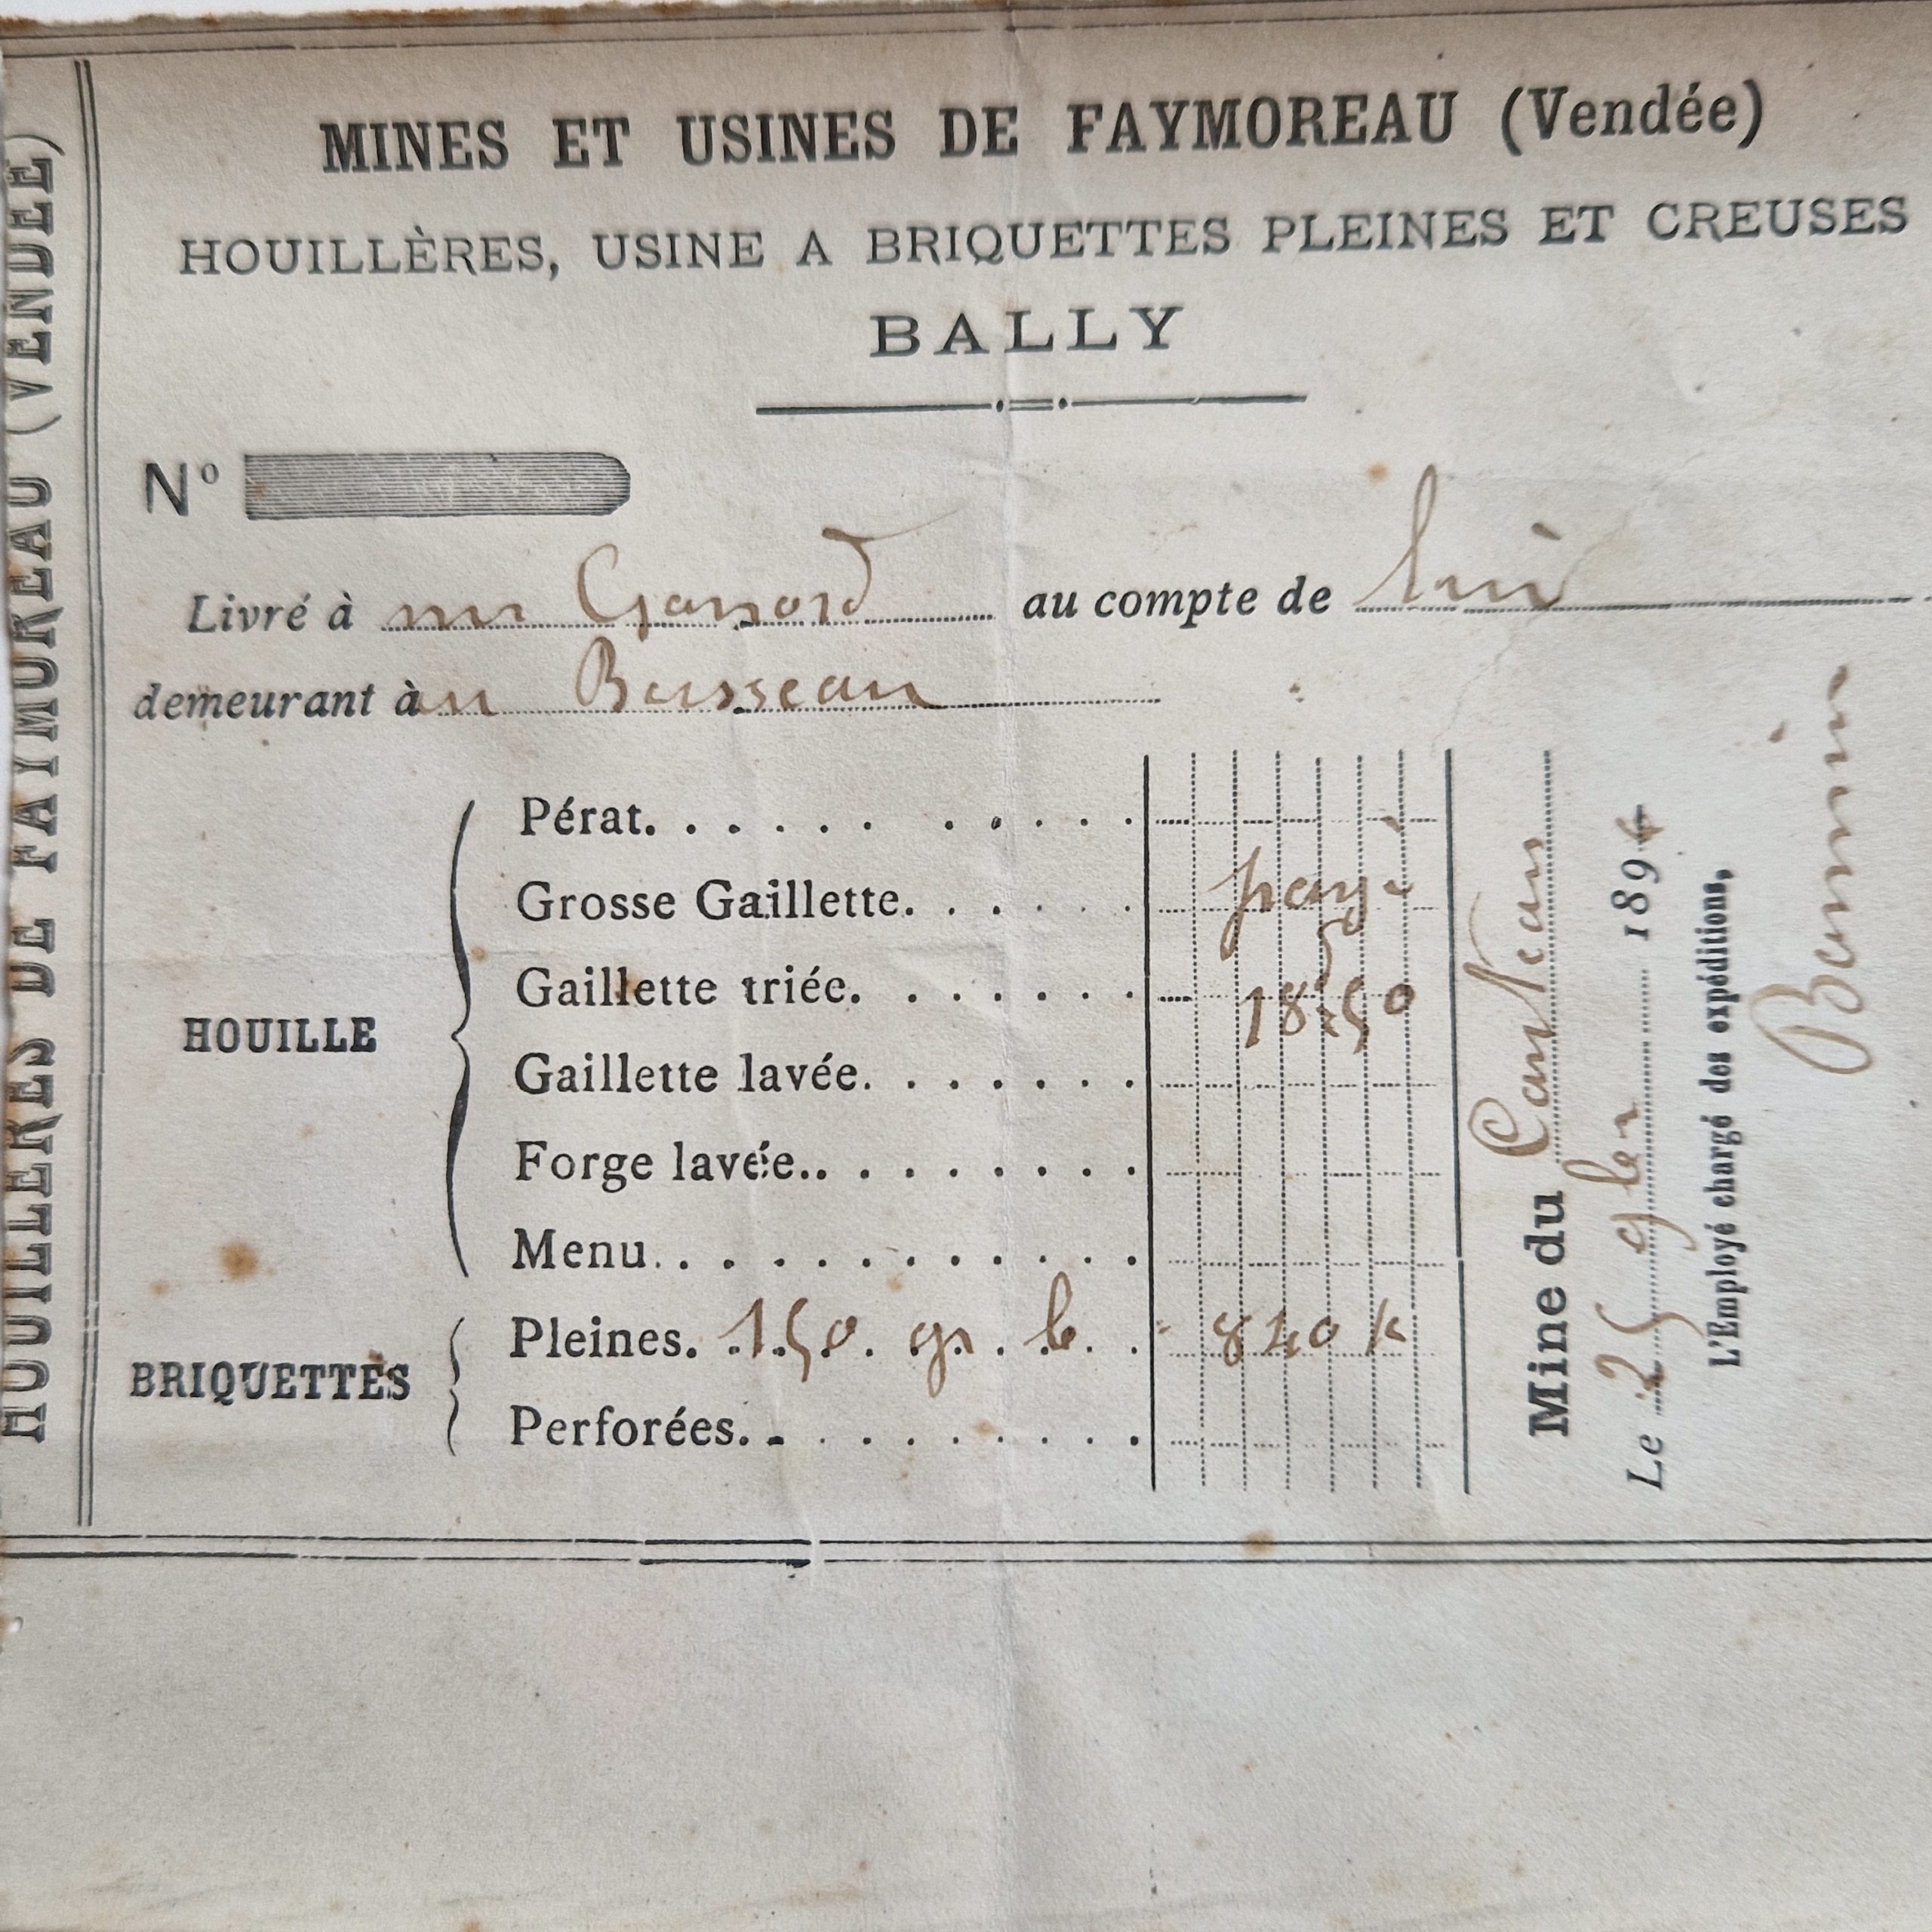 HOUILLÈRES DE FAYMOREAU (VENDÉE)
MINES ET USINES DE FAYMOREAU (Vendée)
HOUILLÈRES, USINE A BRIQUETTES PLEINES ET CREUSES
BALLY
N°
Livré à mr au compte de lui
demeurant à au Busseau
HOUILLE
Pérat.
Grosse Gaillette. payé
Gaillette triée. 18f50
Gaillette lavée.
Forge lavée.
Menu.
BRIQUETTES
Pleines. 150 gr b 840 k
Perforées.
Mine du Couteau
Le 25 9bre 189
L'Employé chargé des expéditions,